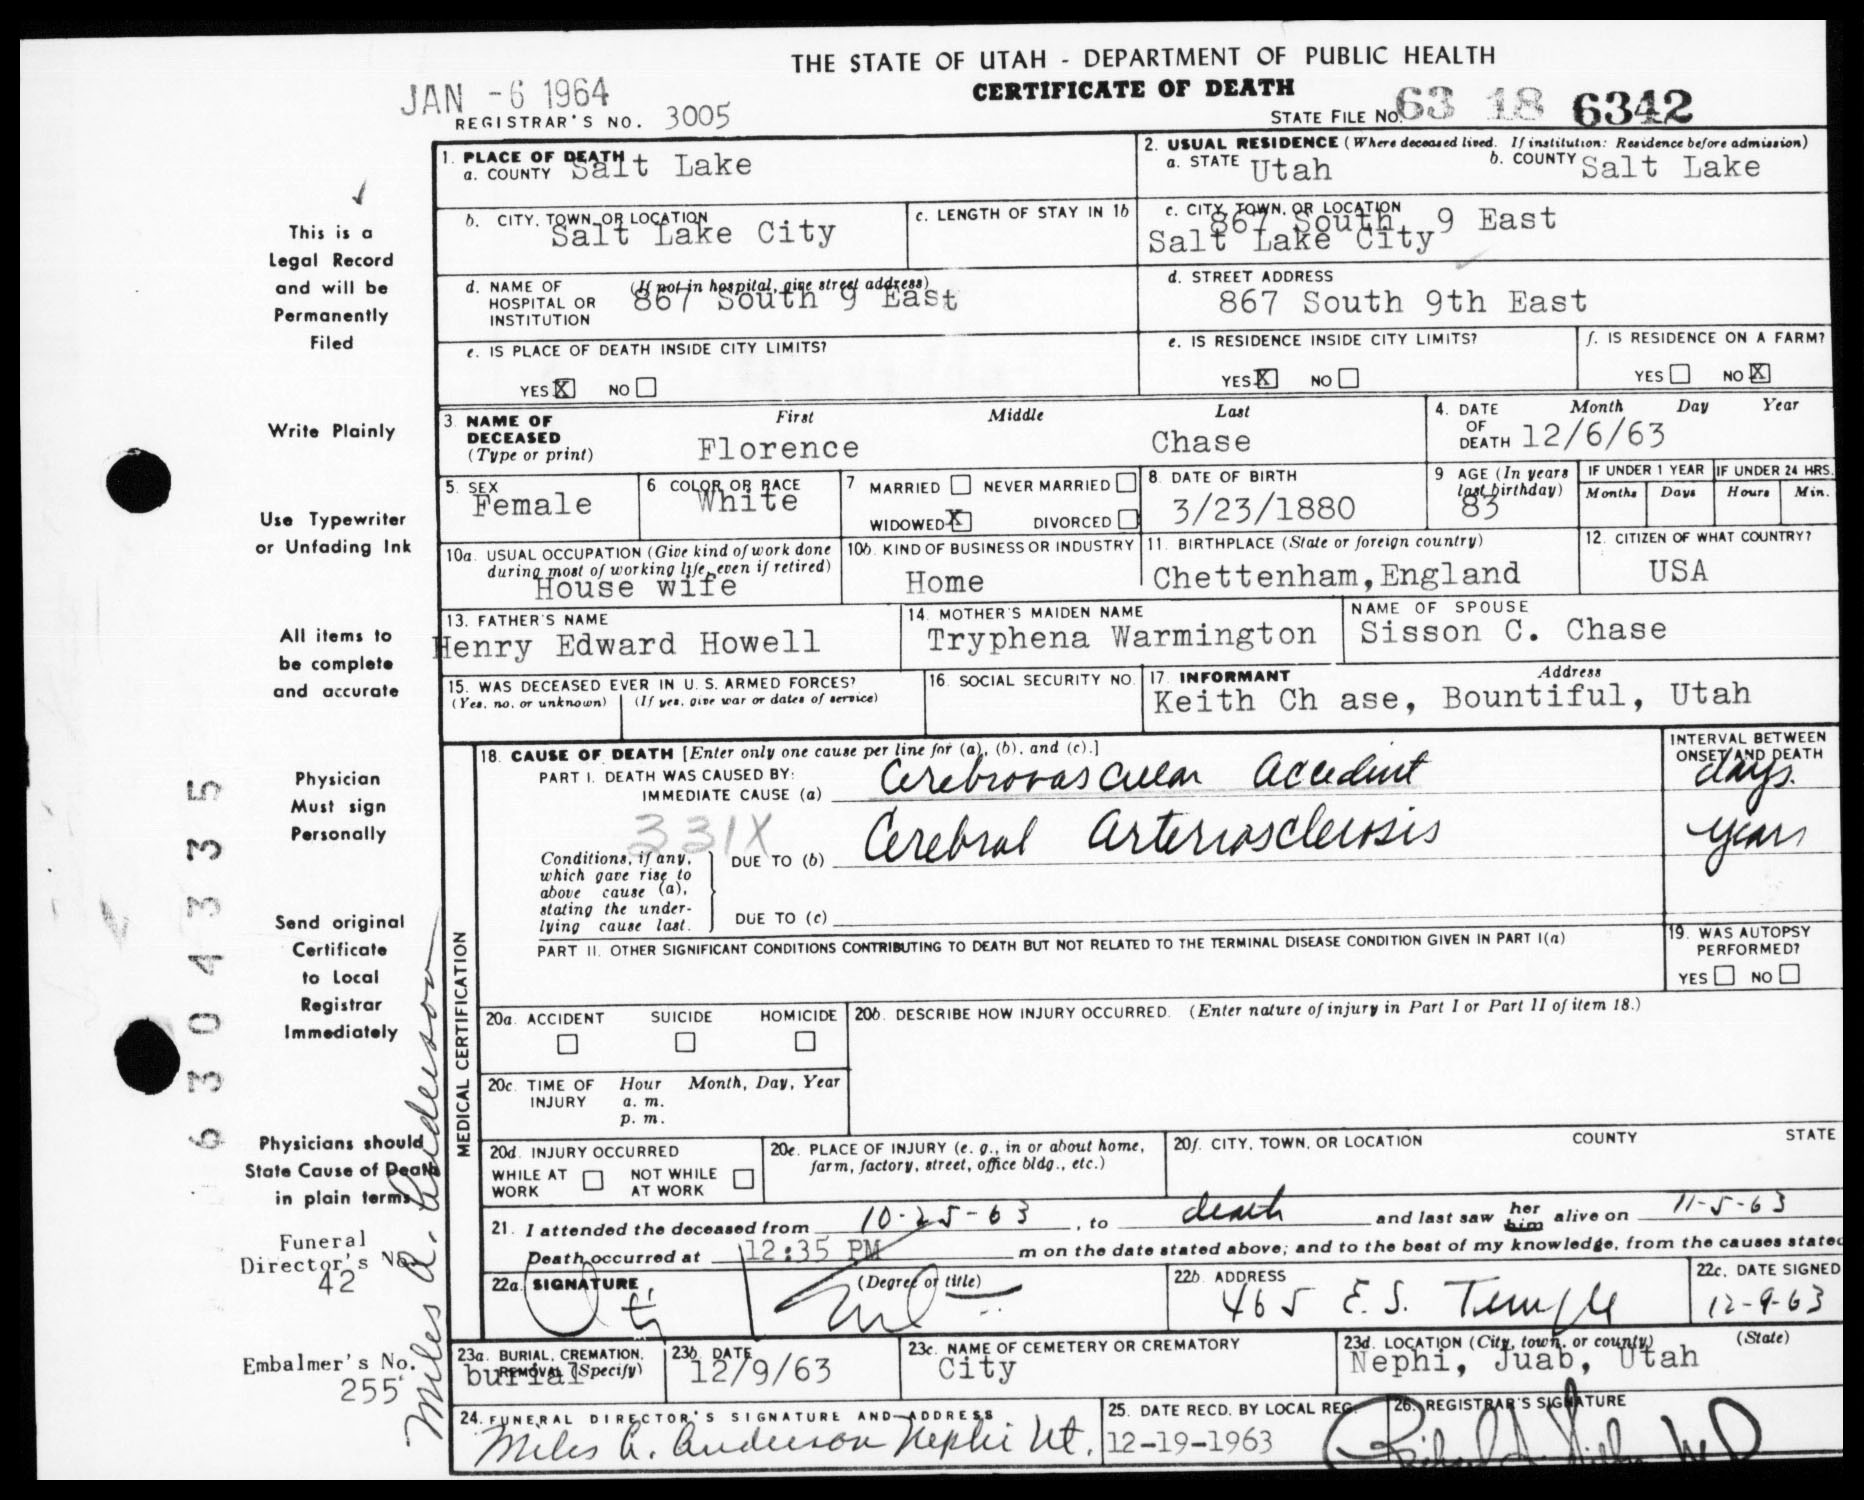 THE STATE OF UTAH - DEPARTMENT OF PUBLIC HEALTH
CERTIFICATE OF DEATH
JAN -6 1964
REGISTRAR'S NO. 3005
STATE FILE NO. 63 18 6342
1. PLACE OF DEATH
a. COUNTY Salt Lake
2. USUAL RESIDENCE (Where deceased lived. If institution: Residence before admission)
a. STATE Utah b. COUNTY Salt Lake
b. CITY, TOWN, OR LOCATION
Salt Lake City
c. LENGTH OF STAY IN 1b
c. CITY, TOWN, OR LOCATION
867 South 9 East
Salt Lake City
d. NAME OF HOSPITAL OR INSTITUTION (If not in hospital, give street address)
867 South 9 East
d. STREET ADDRESS
867 South 9th East
e. IS PLACE OF DEATH INSIDE CITY LIMITS?
YES X NO
e. IS RESIDENCE INSIDE CITY LIMITS?
YES X NO
f. IS RESIDENCE ON A FARM?
YES NO X
3. NAME OF DECEASED (Type or print)
First Middle Last
Florence Chase
4. DATE OF DEATH Month Day Year
12/6/63
5. SEX
Female
6 COLOR OR RACE
White
7 MARRIED NEVER MARRIED
WIDOWED X DIVORCED
8. DATE OF BIRTH
3/23/1880
9 AGE (In years last birthday)
83
IF UNDER 1 YEAR
Months Days
IF UNDER 24 HRS.
Hours Min.
10a. USUAL OCCUPATION (Give kind of work done during most of working life, even if retired)
House wife
10b. KIND OF BUSINESS OR INDUSTRY
Home
11. BIRTHPLACE (State or foreign country)
Chettenham, England
12. CITIZEN OF WHAT COUNTRY?
USA
13. FATHER'S NAME
Henry Edward Howell
14. MOTHER'S MAIDEN NAME
Tryphena Warmington
NAME OF SPOUSE
Sisson C. Chase
15. WAS DECEASED EVER IN U. S. ARMED FORCES?
(Yes, no, or unknown) (If yes, give war or dates of service)
16. SOCIAL SECURITY NO.
17. INFORMANT Address
Keith Ch ase, Bountiful, Utah
MEDICAL CERTIFICATION
18. CAUSE OF DEATH [Enter only one cause per line for (a), (b), and (c).]
PART I. DEATH WAS CAUSED BY:
IMMEDIATE CAUSE (a) Cerebrovascular accident
INTERVAL BETWEEN ONSET AND DEATH
days.
331X
Conditions, if any, which gave rise to above cause (a), stating the underlying cause last.
DUE TO (b) Cerebral arteriosclerosis
years
DUE TO (c)
PART II. OTHER SIGNIFICANT CONDITIONS CONTRIBUTING TO DEATH BUT NOT RELATED TO THE TERMINAL DISEASE CONDITION GIVEN IN PART I(a)
19. WAS AUTOPSY PERFORMED?
YES NO
20a. ACCIDENT SUICIDE HOMICIDE
20b. DESCRIBE HOW INJURY OCCURRED. (Enter nature of injury in Part I or Part II of item 18.)
20c. TIME OF INJURY Hour Month, Day, Year
a. m.
p. m.
20d. INJURY OCCURRED
WHILE AT WORK NOT WHILE AT WORK
20e. PLACE OF INJURY (e. g., in or about home, farm, factory, street, office bldg., etc.)
20f. CITY, TOWN, OR LOCATION COUNTY STATE
21. I attended the deceased from 10-25-63, to death and last saw her him alive on 11-5-63
Death occurred at 12:35 PM m on the date stated above; and to the best of my knowledge, from the causes stated
22a. SIGNATURE (Degree or title)
22b. ADDRESS
465 E. S. Temple
22c. DATE SIGNED
12-9-63
23a. BURIAL, CREMATION, REMOVAL (Specify)
burial
23b. DATE
12/9/63
23c. NAME OF CEMETERY OR CREMATORY
City
23d. LOCATION (City, town, or county) (State)
Nephi, Juab, Utah
24. FUNERAL DIRECTOR'S SIGNATURE AND ADDRESS
Miles A. Anderson Nephi Ut.
25. DATE RECD. BY LOCAL REG.
12-19-1963
26. REGISTRAR'S SIGNATURE
This is a
Legal Record
and will be
Permanently
Filed
Write Plainly
Use Typewriter
or Unfading Ink
All items to
be complete
and accurate
Physician
Must sign
Personally
Send original
Certificate
to Local
Registrar
Immediately
Physicians should
State Cause of Death
in plain terms
Funeral
Director's No.
42
Embalmer's No.
255
Miles A. Anderson
6304335